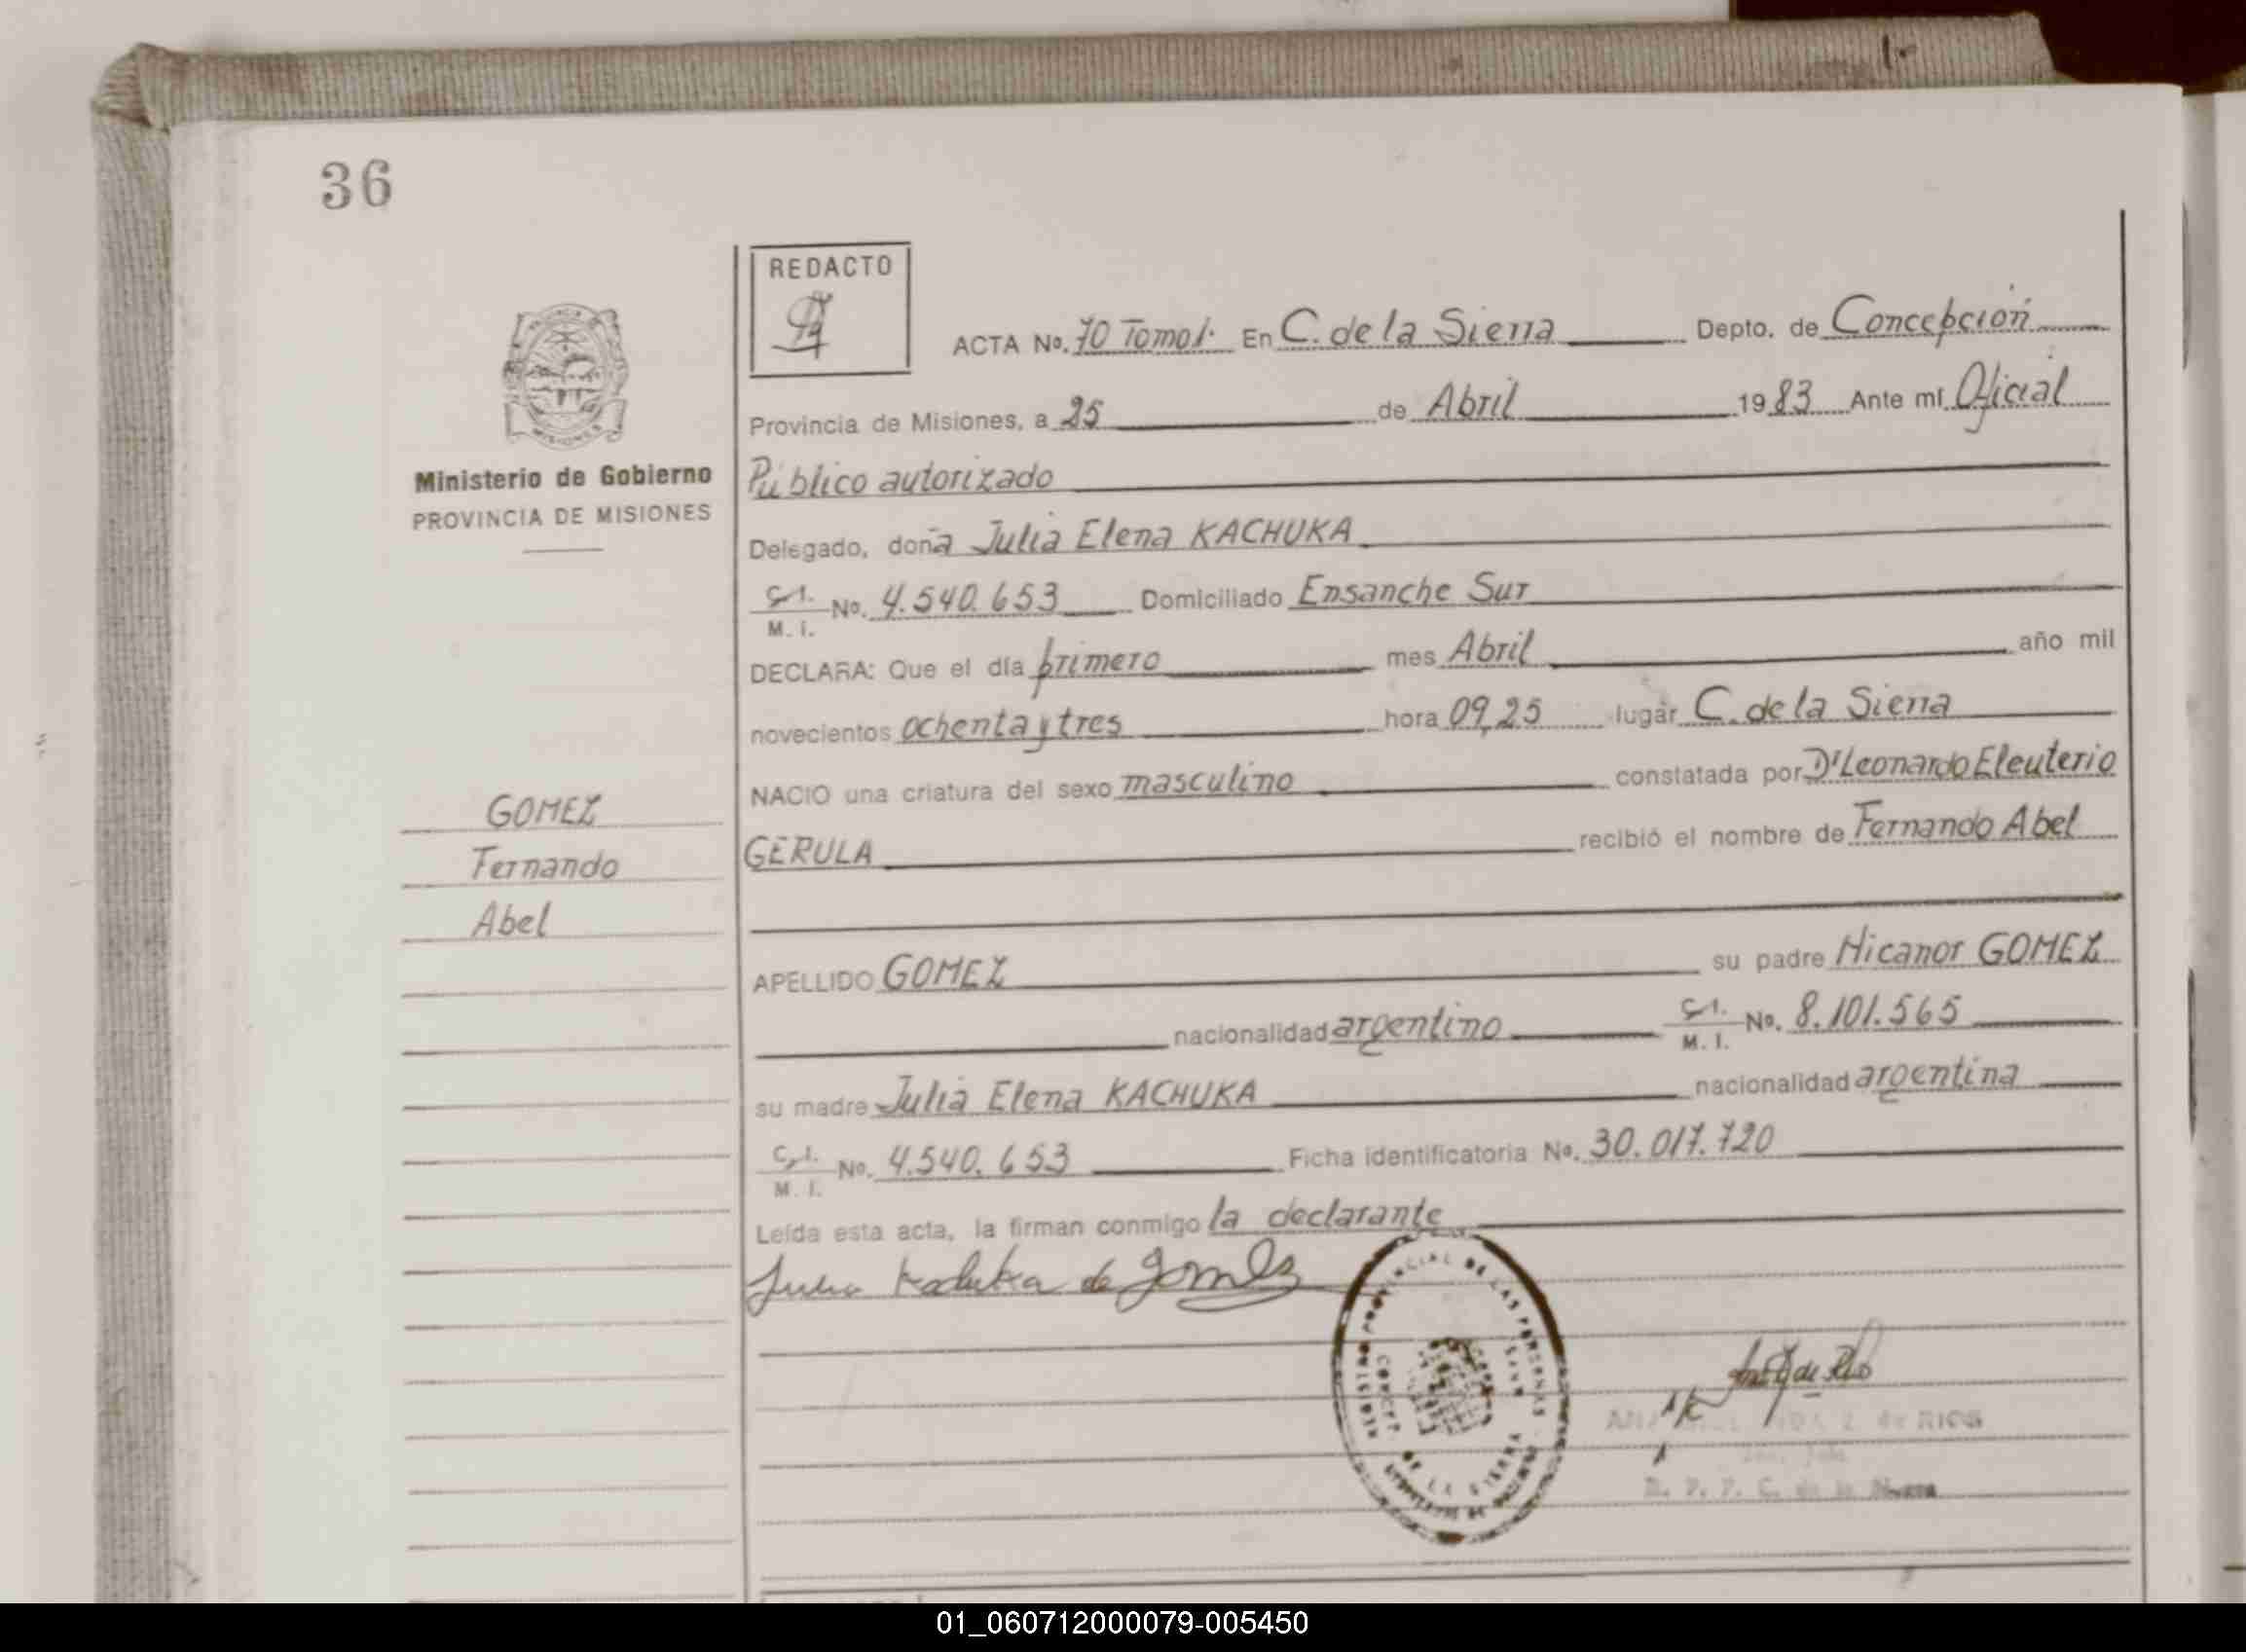 36
REDACTO
ACTA No. 70 Tomo 1. En C. de la Sierra Depto. de Concepción
Provincia de Misiones, a 25 de Abril 1983 Ante mí Oficial
Público autorizado
Delegado, doña Julia Elena KACHUKA
C.I. M.I. No. 4.540.653 Domiciliado Ensanche Sur
DECLARA: Que el día primero mes Abril año mil
novecientos ochenta y tres hora 09,25 lugar C. de la Sierra
NACIO una criatura del sexo masculino constatada por Dr Leonardo Eleuterio
GERULA recibió el nombre de Fernando Abel
APELLIDO GOMEZ su padre Nicanor GOMEZ
nacionalidad argentino C.I. M.I. No. 8.101.565
su madre Julia Elena KACHUKA nacionalidad argentina
C.I. M.I. No. 4.540.653 Ficha identificatoria No. 30.017.720
Leída esta acta, la firman conmigo la declarante
Julia Kachuka de Gomez
Ministerio de Gobierno
PROVINCIA DE MISIONES
GOMEZ
Fernando
Abel
PROVINCIAL DE LAS PERSONAS
CONCEP. DE LA SIERRA
de RIOS
01_060712000079-005450